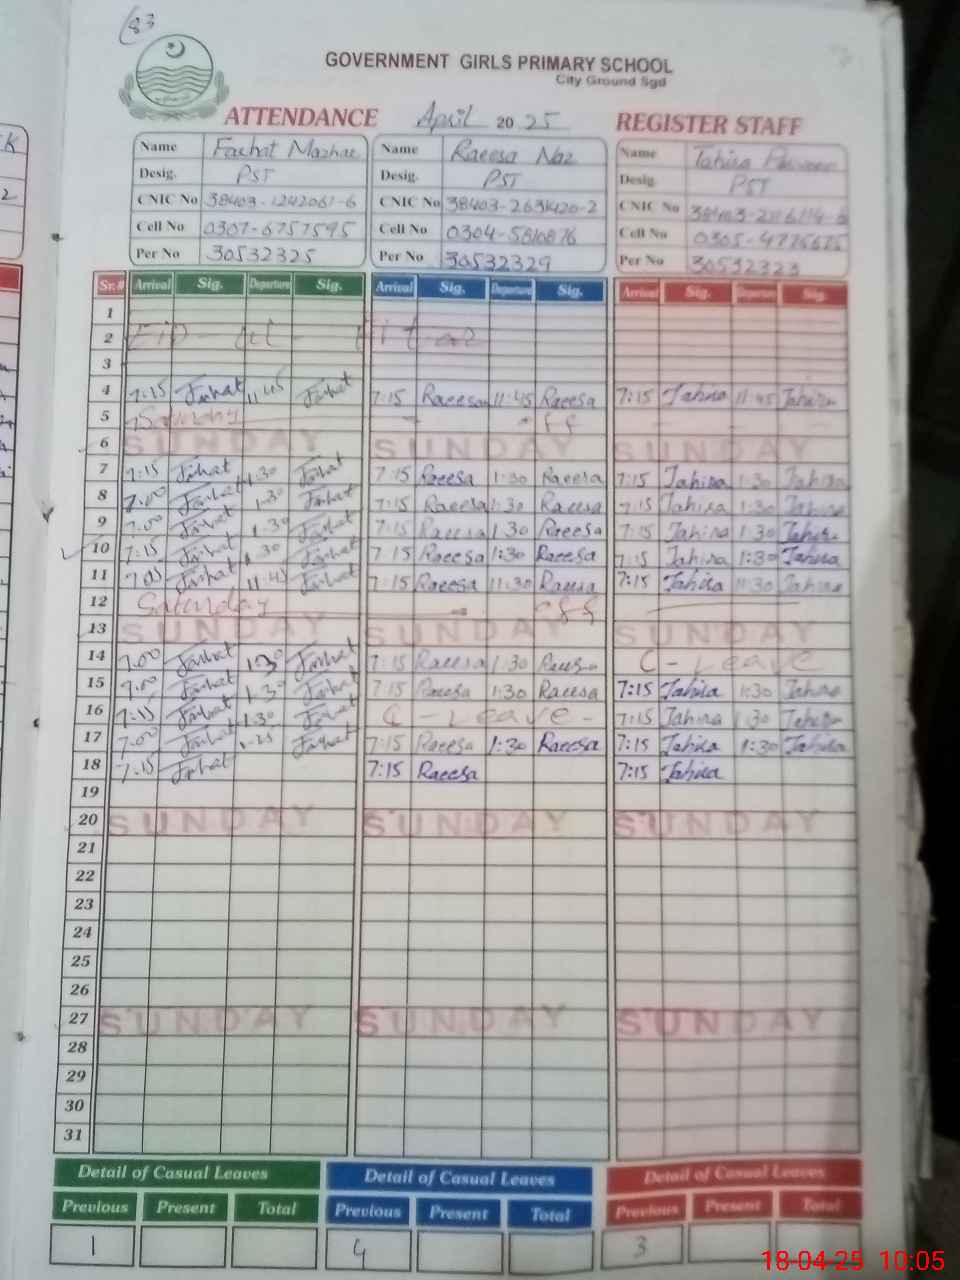 (83
GOVERNMENT GIRLS PRIMARY SCHOOL
City Ground Sgd
ATTENDANCE April 2025 REGISTER STAFF
Name Farhat Mazhar Name Raeesa Naz Name Tahira Parveen
Desig. PST Desig. PST Desig. PST
CNIC No 38403-1242061-6 CNIC No 38403-2631420-2 CNIC No
Cell No 0307-6757595 Cell No 0304-5810876 Cell No
Per No 30532325 Per No 30532329 Per No 30532323
Sr.# Arrival Sig. Departure Sig. Arrival Sig. Departure Sig. Arrival Sig. Departure Sig.
1
2 Eid-ul-Fitar
3
4 7:15 Farhat 11:45 Farhat 7:15 Raeesa 11:45 Raeesa 7:15 Tahira 11:45 Tahira
5 Saturday - - off
6 SUNDAY SUNDAY SUNDAY
7 7:15 Farhat 1:30 Farhat 7:15 Raeesa 1:30 Raeesa 7:15 Tahira 1:30 Tahira
8 7:00 Farhat 1:30 Farhat 7:15 Raeesa 1:30 Raeesa 7:15 Tahira 1:30 Tahira
9 7:00 Farhat 1:30 Farhat 7:15 Raeesa 1:30 Raeesa 7:15 Tahira 1:30 Tahira
10 7:15 Farhat 1:30 Farhat 7:15 Raeesa 1:30 Raeesa 7:15 Tahira 1:30 Tahira
11 7:05 Farhat 11:45 Farhat 7:15 Raeesa 11:30 Raeesa 7:15 Tahira 11:30 Tahira
12 Saturday - off
13 SUNDAY SUNDAY SUNDAY
14 7:00 Farhat 1:30 Farhat 7:15 Raeesa 1:30 Raeesa C-Leave
15 7:00 Farhat 1:30 Farhat 7:15 Raeesa 1:30 Raeesa 7:15 Tahira 1:30 Tahira
16 7:15 Farhat 1:30 Farhat C-Leave- 7:15 Tahira 1:30 Tahira
17 7:00 Farhat 1:25 Farhat 7:15 Raeesa 1:30 Raeesa 7:15 Tahira 1:30 Tahira
18 7:15 Farhat 7:15 Raeesa 7:15 Tahira
19
20 SUNDAY SUNDAY SUNDAY
21
22
23
24
25
26
27 SUNDAY SUNDAY SUNDAY
28
29
30
31
Detail of Casual Leaves Detail of Casual Leaves Detail of Casual Leaves
Previous Present Total Previous Present Total Previous Present Total
1 4 3
18-04-25 10:05